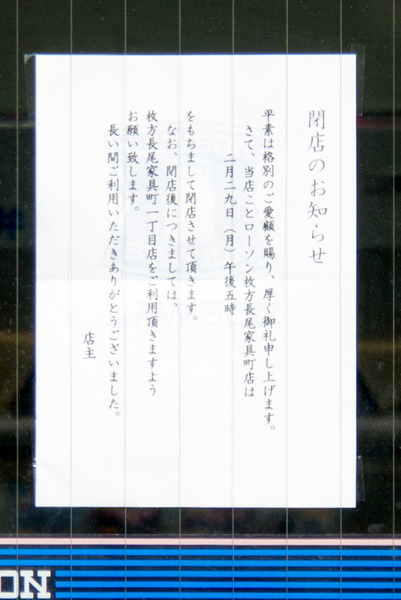 閉店のお知らせ
平素は格別のご愛顧を賜り、厚く御礼申し上げます。
さて、当店ことローソン枚方長尾家具町店は
二月二九日(月)午後五時
をもちまして閉店させて頂きます。
なお、閉店後につきましては、
枚方長尾家具町一丁目店をご利用頂きますよう
お願い致します。
長い間ご利用いただきありがとうございました。
店主
ON